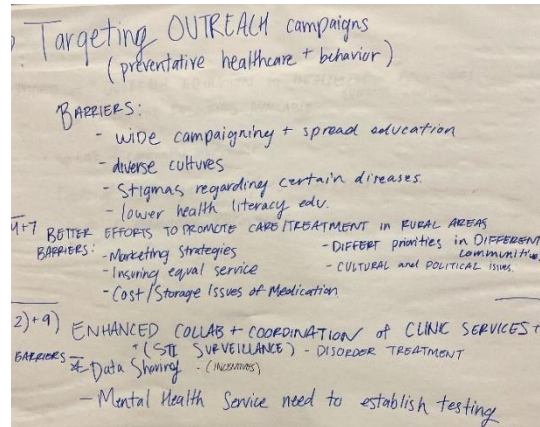 ) Targeting OUTREACH campaigns
(preventative healthcare + behavior)
BARRIERS:
- wide campaigning + spread education
- diverse cultures
- Stigmas regarding certain diseases.
- lower health literacy edu.
4+7 BETTER EFFORTS TO PROMOTE CARE/TREATMENT IN RURAL AREAS
BARRIERS:
- Marketing Strategies
- Insuring equal service
- Cost/Storage Issues of Medication
- DIFFERT priorities in DIFFERENT
communities.
- CULTURAL and POLITICAL issues.
2)+9) ENHANCED COLLAB + COORDINATION of CLINIC SERVICES +
(STI SURVEILLANCE) - DISORDER TREATMENT
BARRIERS - Data Sharing - (INCENTIVES)
- Mental Health Service need to establish testing